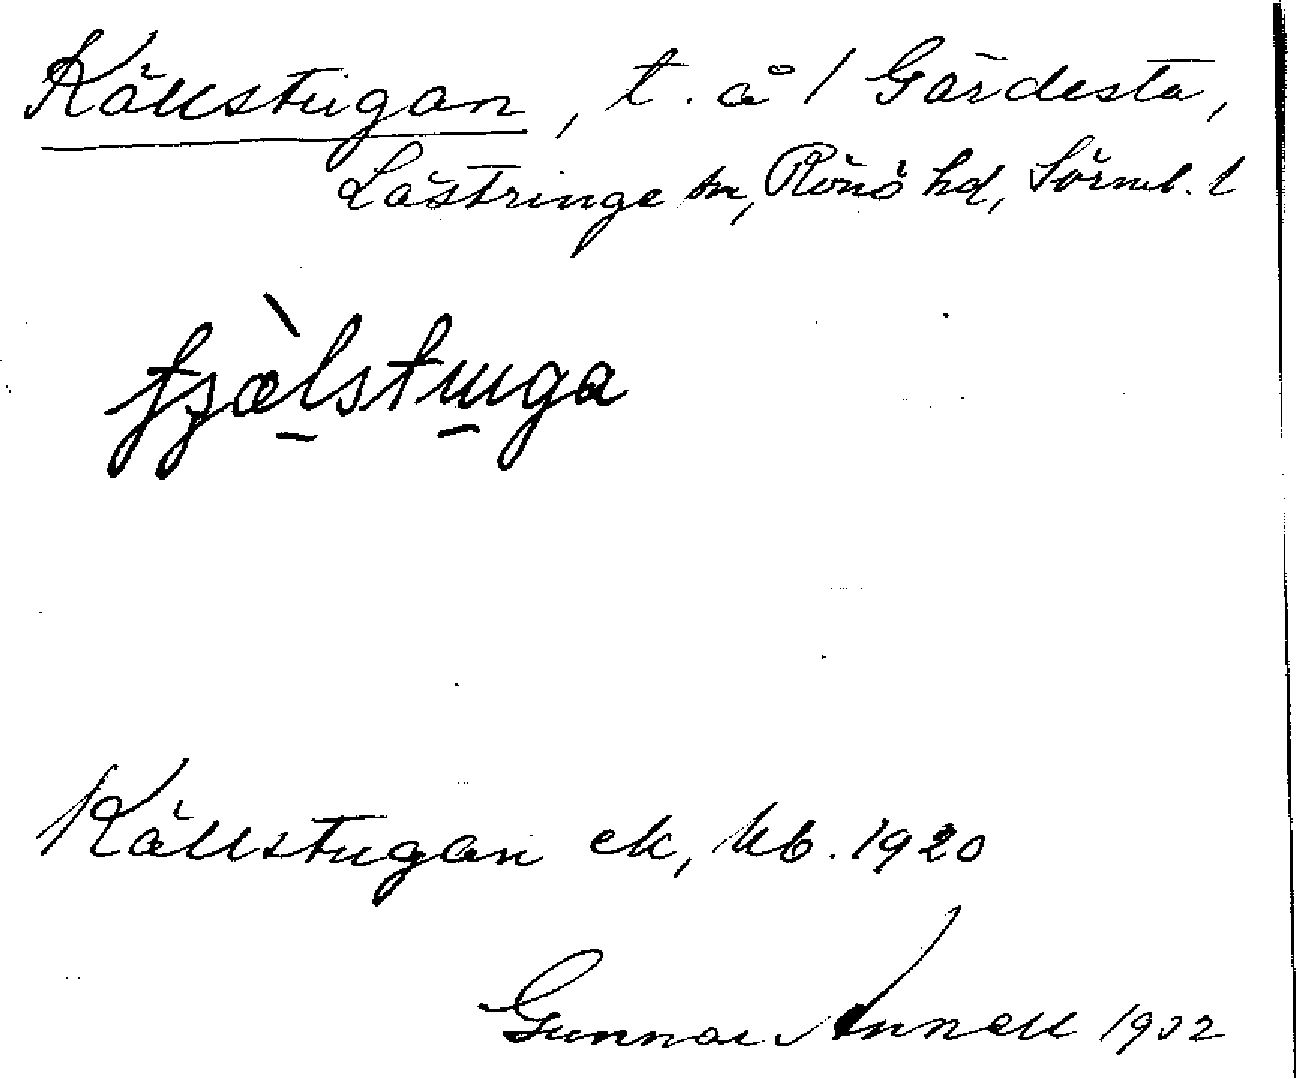 Källstugan, t. å 1 Gärdesta,
Lästringe sn, Rönö hd, Sörml. l
tjælstuga
Källstugan ek, kb. 1920
Gunnar Annell 1932